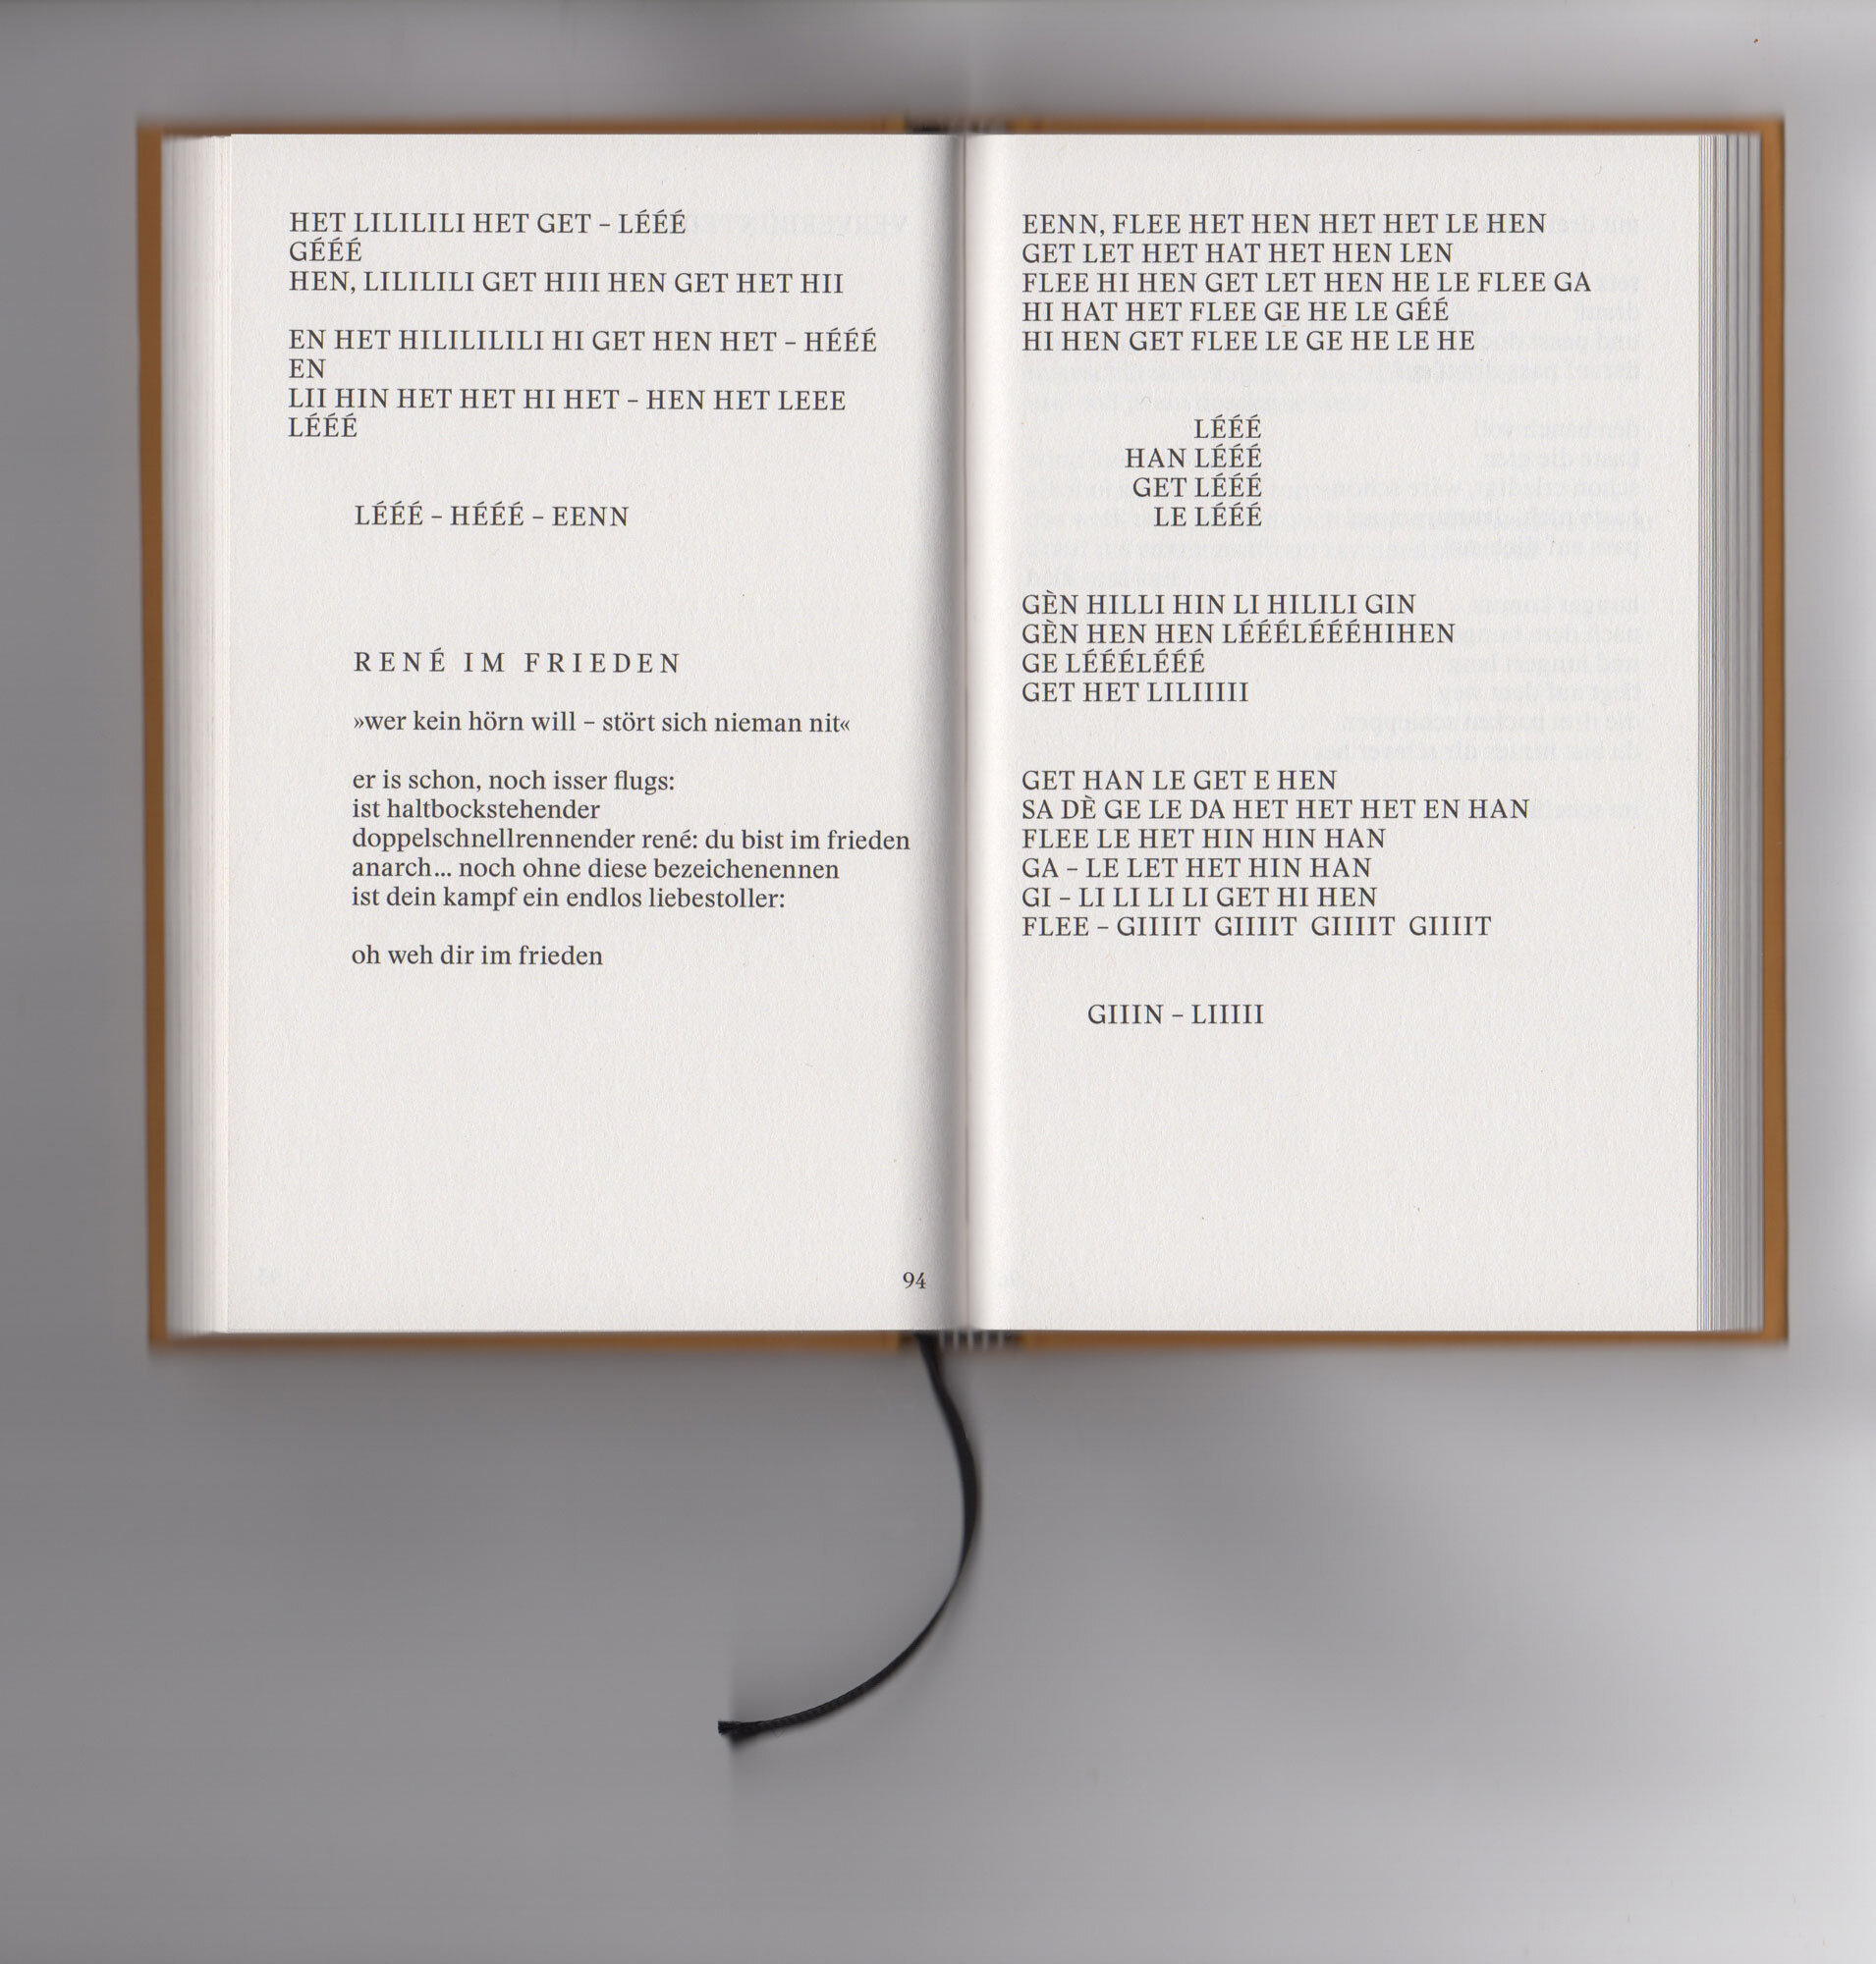 HET LILILILI HET GET – LÉÉÉ
GÉÉÉ
HEN, LILILILI GET HIII HEN GET HET HII
EN HET HILILILILI HI GET HEN HET – HÉÉÉ
EN
LII HIN HET HET HI HET – HEN HET LEEE
LÉÉÉ
LÉÉÉ – HÉÉÉ – EENN
RENÉ IM FRIEDEN
»wer kein hörn will – stört sich nieman nit«
er is schon, noch isser flugs:
ist haltbockstehender
doppelschnellrennender rené: du bist im frieden
anarch... noch ohne diese bezeichenennen
ist dein kampf ein endlos liebestoller:
oh weh dir im frieden
94
EENN, FLEE HET HEN HET HET LE HEN
GET LET HET HAT HET HEN LEN
FLEE HI HEN GET LET HEN HE LE FLEE GA
HI HAT HET FLEE GE HE LE GÉÉ
HI HEN GET FLEE LE GE HE LE HE
LÉÉÉ
HAN LÉÉÉ
GET LÉÉÉ
LE LÉÉÉ
GÈN HILLI HIN LI HILILI GIN
GÈN HEN HEN LÉÉÉLÉÉÉHIHEN
GE LÉÉÉLÉÉÉ
GET HET LILIIIII
GET HAN LE GET E HEN
SA DÈ GE LE DA HET HET HET EN HAN
FLEE LE HET HIN HIN HAN
GA – LE LET HET HIN HAN
GI – LI LI LI LI GET HI HEN
FLEE – GIIIIT GIIIIT GIIIIT GIIIIT
GIIIN – LIIIII